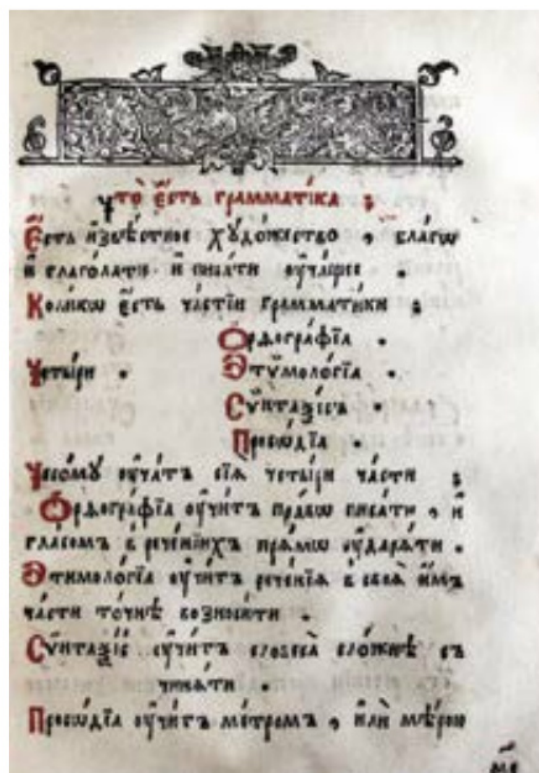 Что̀ є҆́сть грамма́тїка ;
Є҆́сть и҆звѣ́стное хꙋдо́жество , бла́гѡ
и҆ глаго́лати и҆ писа́ти ᲂу҆ча́щее .
Коли́кѡ є҆́сть ча́стїй грамма́тїки ;
Ѻ҆рѳогра́фїа .
Четы́ри . Э҆тѷмоло́гїа .
Сѷ́нтаѯїсъ .
Просѡ́дїа
Чесомꙋ̀ ᲂу҆ча́тъ сїѧ̑ четы́ри ча̑сти ;
Ѻ҆рѳогра́фїа ᲂу҆чи́тъ пра́вѡ писа́ти , и҆
гла́сомъ в рече́нїихъ прѧ́мѡ ᲂу҆дарѧ́ти .
Э҆тимоло́гїа ᲂу҆чи́тъ рече́нїѧ в своѧ̑ и҆̀мъ
ча̑сти то́чнѣ возноси́ти .
Сѷ́нтаѯїс ᲂу҆чи́тъ словеса̀ сло́жнѣ съ
чинѧ́ти .
Просѡ́дїа ᲂу҆чи́тъ ме́тромъ , и҆лѝ мѣ́рою
ме